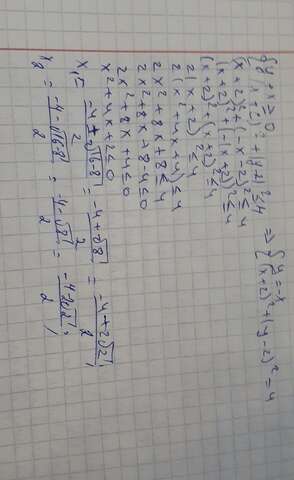 { y + x ≥ 0;
(x+2)² + (y-2)² ≤ 4 => { y = -x
(x+2)² + (y-2)² = 4
(x+2)² + (-x-2)² ≤ 4
(x+2)² + (-(x+2))² ≤ 4
(x+2)² + (x+2)² ≤ 4
2(x+2)² ≤ 4
2(x²+4x+4) ≤ 4
2x²+8x+8 ≤ 4
2x²+8x+8-4 ≤ 0
2x²+8x+4 ≤ 0
x²+4x+2 ≤ 0
x₁ = (-4+√16-8)/2 = (-4+√8)/2 = (-4+2√2)/2;
x₂ = (-4-√16-8)/2 = (-4-√8)/2 = (-4-2√2)/2;